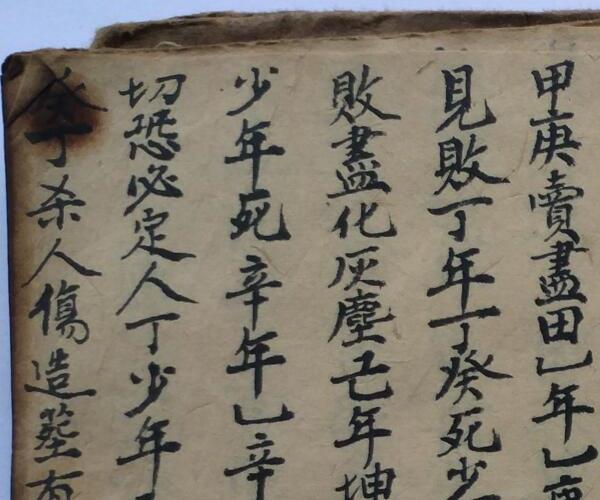 甲庚賣盡田乙年乙
見敗丁年丁癸死少
敗盡化灰塵己年坤
少年死辛年乙辛
切恐必定人丁少年
癸丁杀人傷造塟有